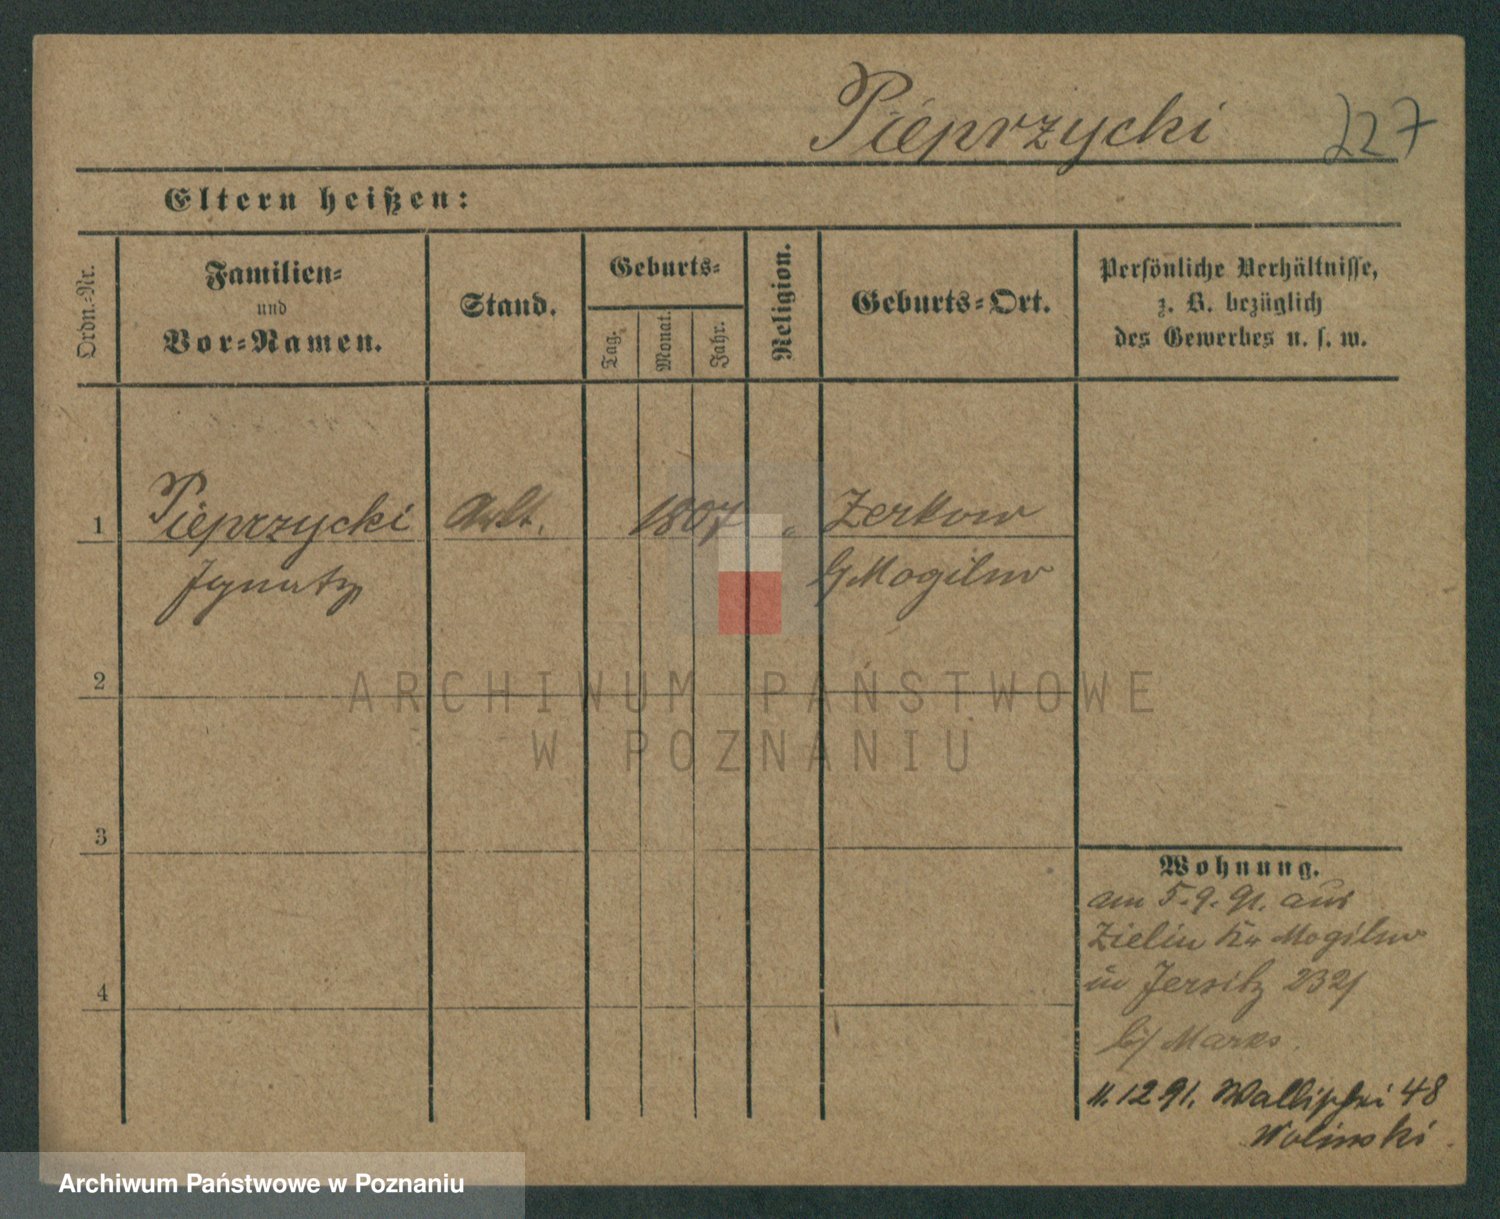 Pieprzycki 227
Eltern heißen:
Ordn.-Nr.
Familien-
und
Vor-Namen.
Stand.
Geburts-
Tag.
Monat.
Jahr.
Religion.
Geburts-Ort.
Persönliche Verhältnisse,
z. B. bezüglich
des Gewerbes u. s. w.
1 Pieprzycki Arbt. 1807 Zerkow
Ignatz Mogilno
2
ARCHIWUM PAŃSTWOWE
W POZNANIU
3
Wohnung.
am 5.9.91. aus
Zielin Kr Mogilno
in Jersitz 232/
b/ Marks.
11.12 91. 48
Wolinski.
4
Archiwum Państwowe w Poznaniu